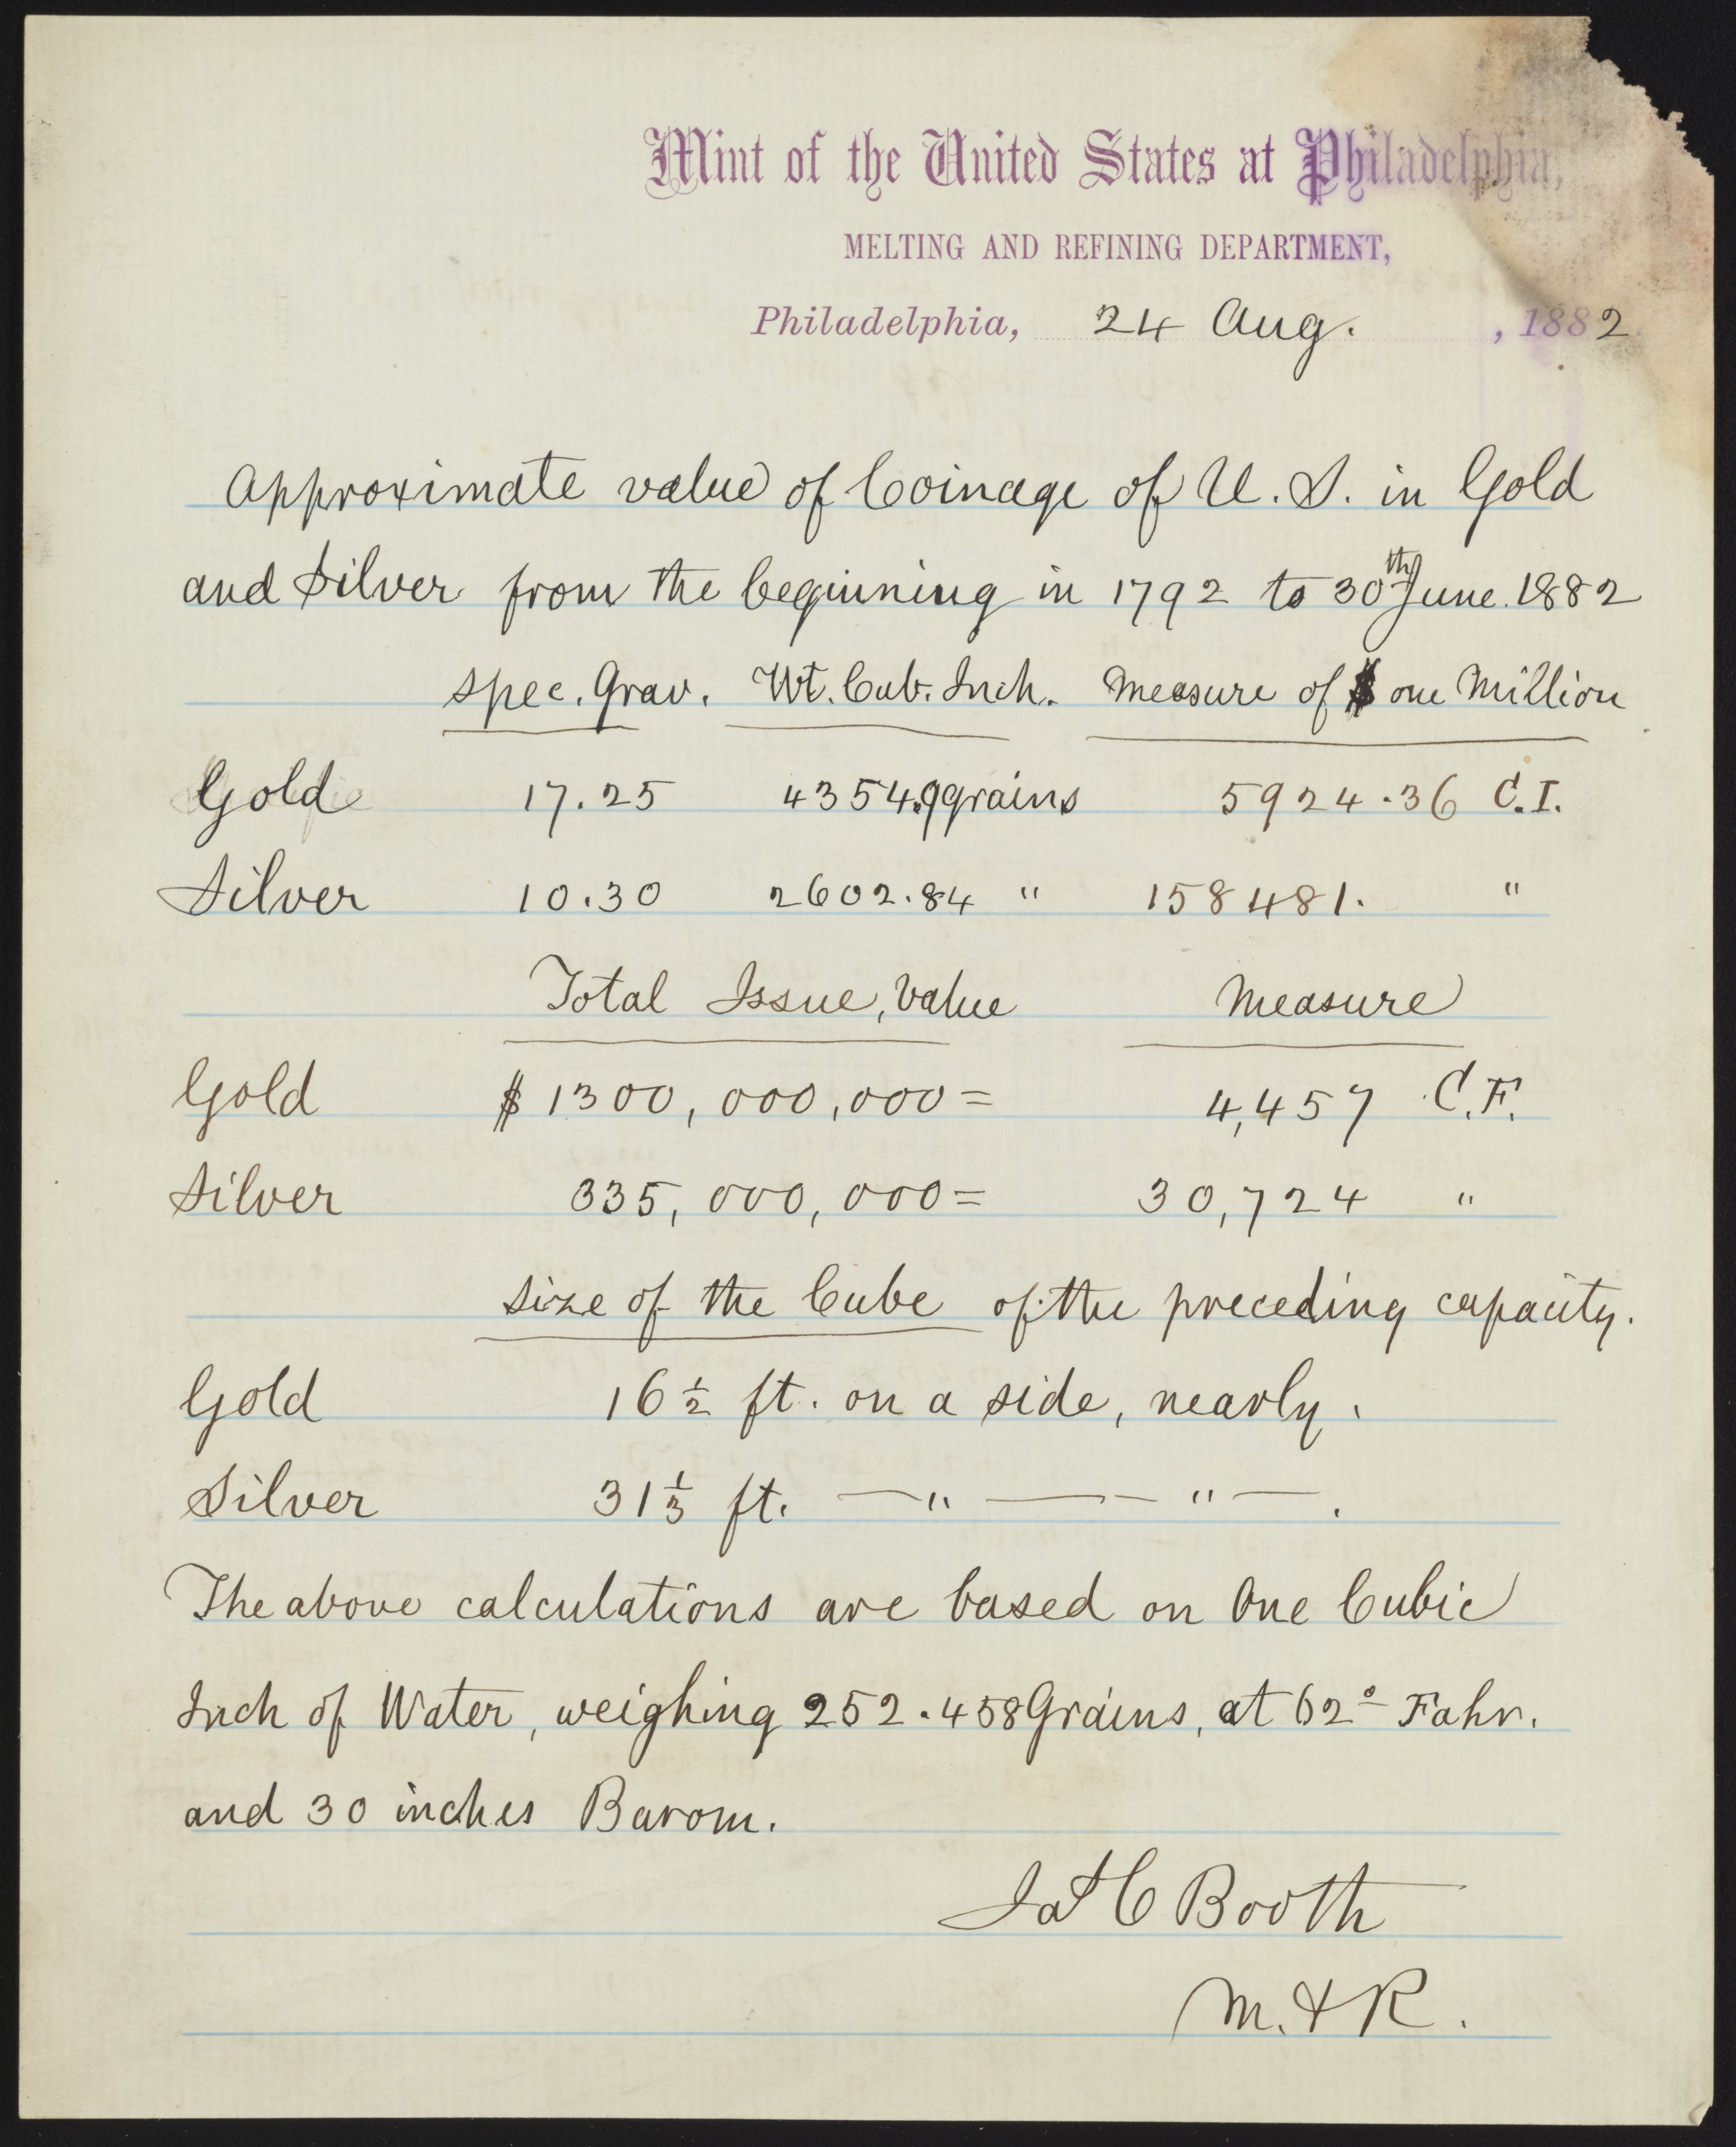 Mint of the United States at Philadelphia,
MELTING AND REFINING DEPARTMENT,
Philadelphia, 24 Aug. , 1882
Approximate value of Coinage of U. S. in Gold
and Silver from the beginning in 1792 to 30th June. 1882
spec. Grav. Wt. Cub. Inch. Measure of $ one Million
Gold 17.25 4354.9 grains 5924.36 C.I.
Silver 10.30 2602.84 " 158481. "
Total Issue, Value Measure
Gold $ 1300,000,000 = 4,457 C.F.
Silver 335,000,000 = 30,724 "
Size of the Cube of the preceding capacity.
Gold 16 1/2 ft. on a side, nearly.
Silver 31 1/3 ft. — " — — " — .
The above calculations are based on One Cubic
Inch of Water, weighing 252.458 Grains, at 62° Fahr.
and 30 inches Barom.
Jas C Booth
M. & R.